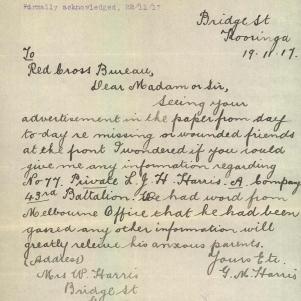 Formally acknowledged, 22/11/17
Bridge St
Kooringa
19.11.17.
To
Red Cross Bureau,
Dear Madam or Sir,
Seeing your
advertisement in the paper from day
to day re missing or wounded friends
at the front I wondered if you could
give me any information regarding
No 77. Private L. J. H. Harris. A. Company
43rd Battalion. We had word from
Melbourne Office that he had been
gassed any other information will
greatly relieve his anxious parents.
(Address) Yours Etc.
Mrs W. Harris G. M. Harris
Bridge St